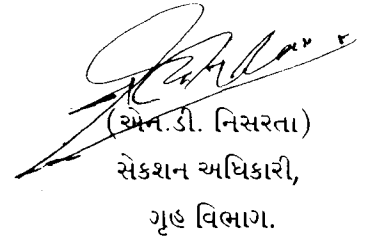 (એન.ડી. નિસરતા)
સેકશન અધિકારી,
ગૃહ વિભાગ.